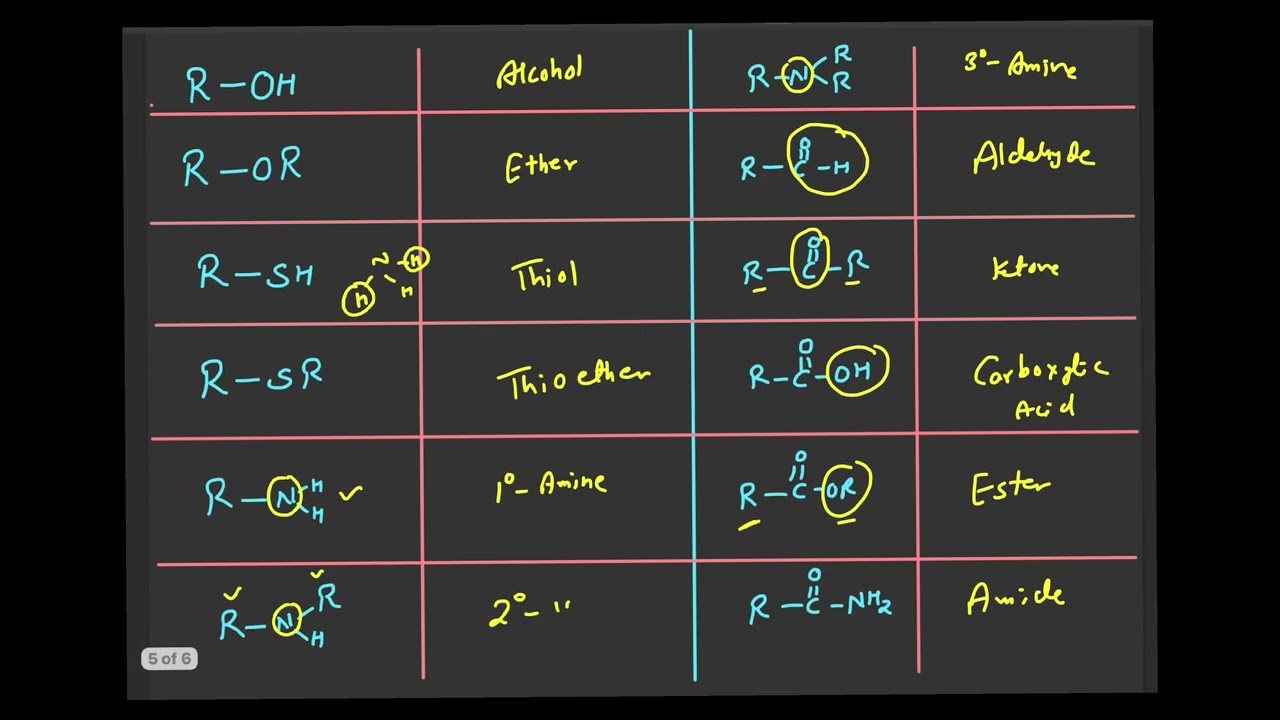 R-OH
Alcohol
R-N
R
R
3°- Amine
R-OR
Ether
R-C-H
O
Aldehyde
R-SH
N-H
H
H
Thiol
O
R-C-R
Ketone
R-SR
Thioether
O
R-C-OH
Carboxylic
Acid
R-N
H
H
1°- Amine
O
R-C-OR
Ester
R
R-N
H
2°- "
O
R-C-NH2
Amide
5 of 6